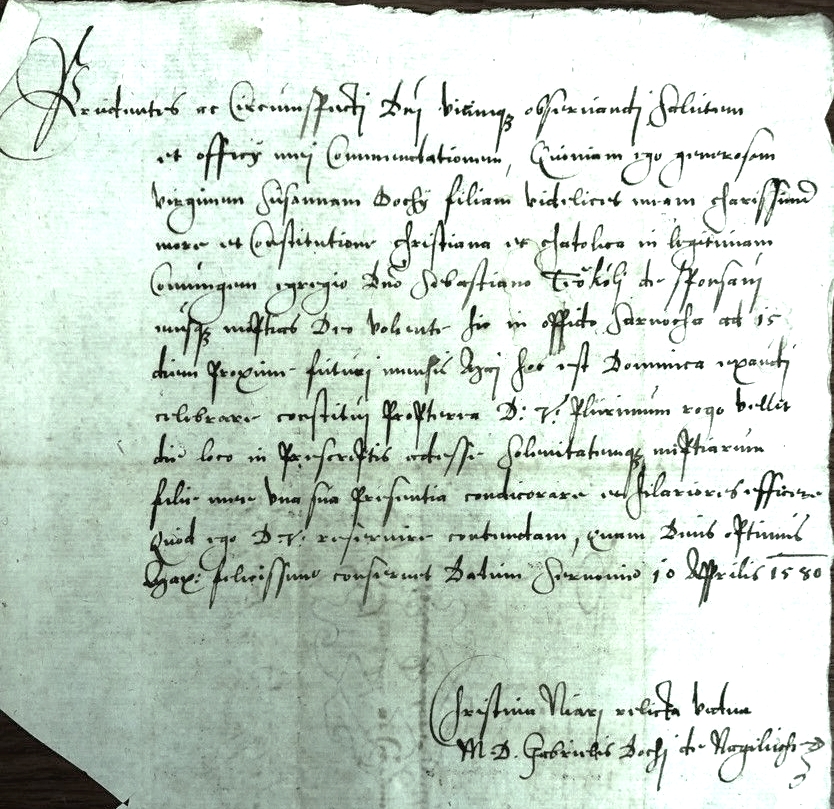 Prudentes ac Circumspecti Dni vicinique observandi Salutem
et officij mei Commendationem, Quoniam ego generosam
virginem Susannam Dochy filiam videlicet meam charissimā
more et Constitutione christiana et chatolica in legitimam
Coniungem egregio Dno Sebastiano Teökölj de sponsavi
eiusq nuptias Deo volente hic in oppido Sarnocha ad 15
diem Proxime futuri mensis Maij hoc est Dominica exaudi
celebrare constitui Propterea D: V: Plurimum rogo vellit
die loco in Prescriptis adesse Solenitatemq nuptiarum
filie mee una sua Presentia condicorare et hilariores efficere
Quod ego D V: reservire contendam, quam Deus optimus
Max: felicissime conservet Datum 10 Apprilis 1580
Christina Niari relicta vidua
M. D. Gabrielis Dochi de Nagiliuch